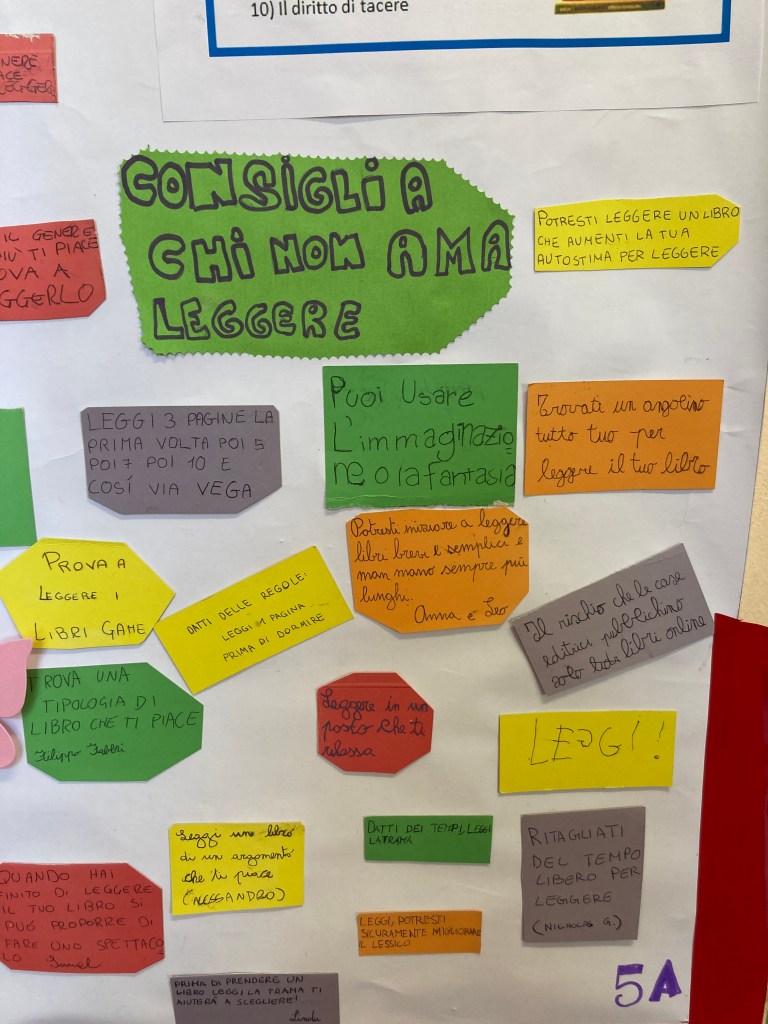 10) Il diritto di tacere
CONSIGLI A
CHI NON AMA
LEGGERE
POTRESTI LEGGERE UN LIBRO
CHE AUMENTI LA TUA
AUTOSTIMA PER LEGGERE
IL GENERE
PIÙ TI PIACE
LEGGI 3 PAGINE LA
PRIMA VOLTA POI 5
POI 7 POI 10 E
COSÍ VIA VEGA
Puoi Usare
L'immaginazio
ne o la fantasia
Trovati un angolino
tutto tuo per
leggere il tuo libro
Potresti iniziare a leggere
libri brevi e semplici e
man mano sempre più
lunghi.
Anna e Leo
PROVA A
LEGGERE I
LIBRI GAME
DATTI DELLE REGOLE:
LEGGI 1 PAGINA
PRIMA DI DORMIRE
Il rischio che le case
editrici pubblichino
solo libri online
TROVA UNA
TIPOLOGIA DI
LIBRO CHE TI PIACE
Filippo Fabbri
Leggere in un
posto che ti
rilassa
LEGGI!
Leggi un libro
di un argomento
che ti piace
(ALESSANDRO)
DATTI DEI TEMPI, LEGGI
LA TRAMA
RITAGLIATI
DEL TEMPO
LIBERO PER
LEGGERE
(NICHOLAS G.)
QUANDO HAI
FINITO DI LEGGERE
IL TUO LIBRO SI
PUÓ PROPORRE DI
FARE UNO SPETTACO
LO
LEGGI, POTRESTI
SICURAMENTE MIGLIORARE
IL LESSICO
PRIMA DI PRENDERE UN
LIBRO LEGGI LA TRAMA TI
AIUTERÀ A SCEGLIERE!
Linda
5A